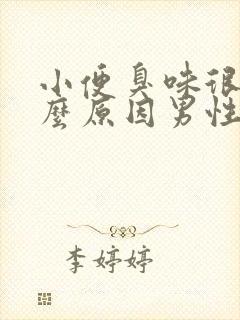 小便臭味很
麼原因男性
李婷婷